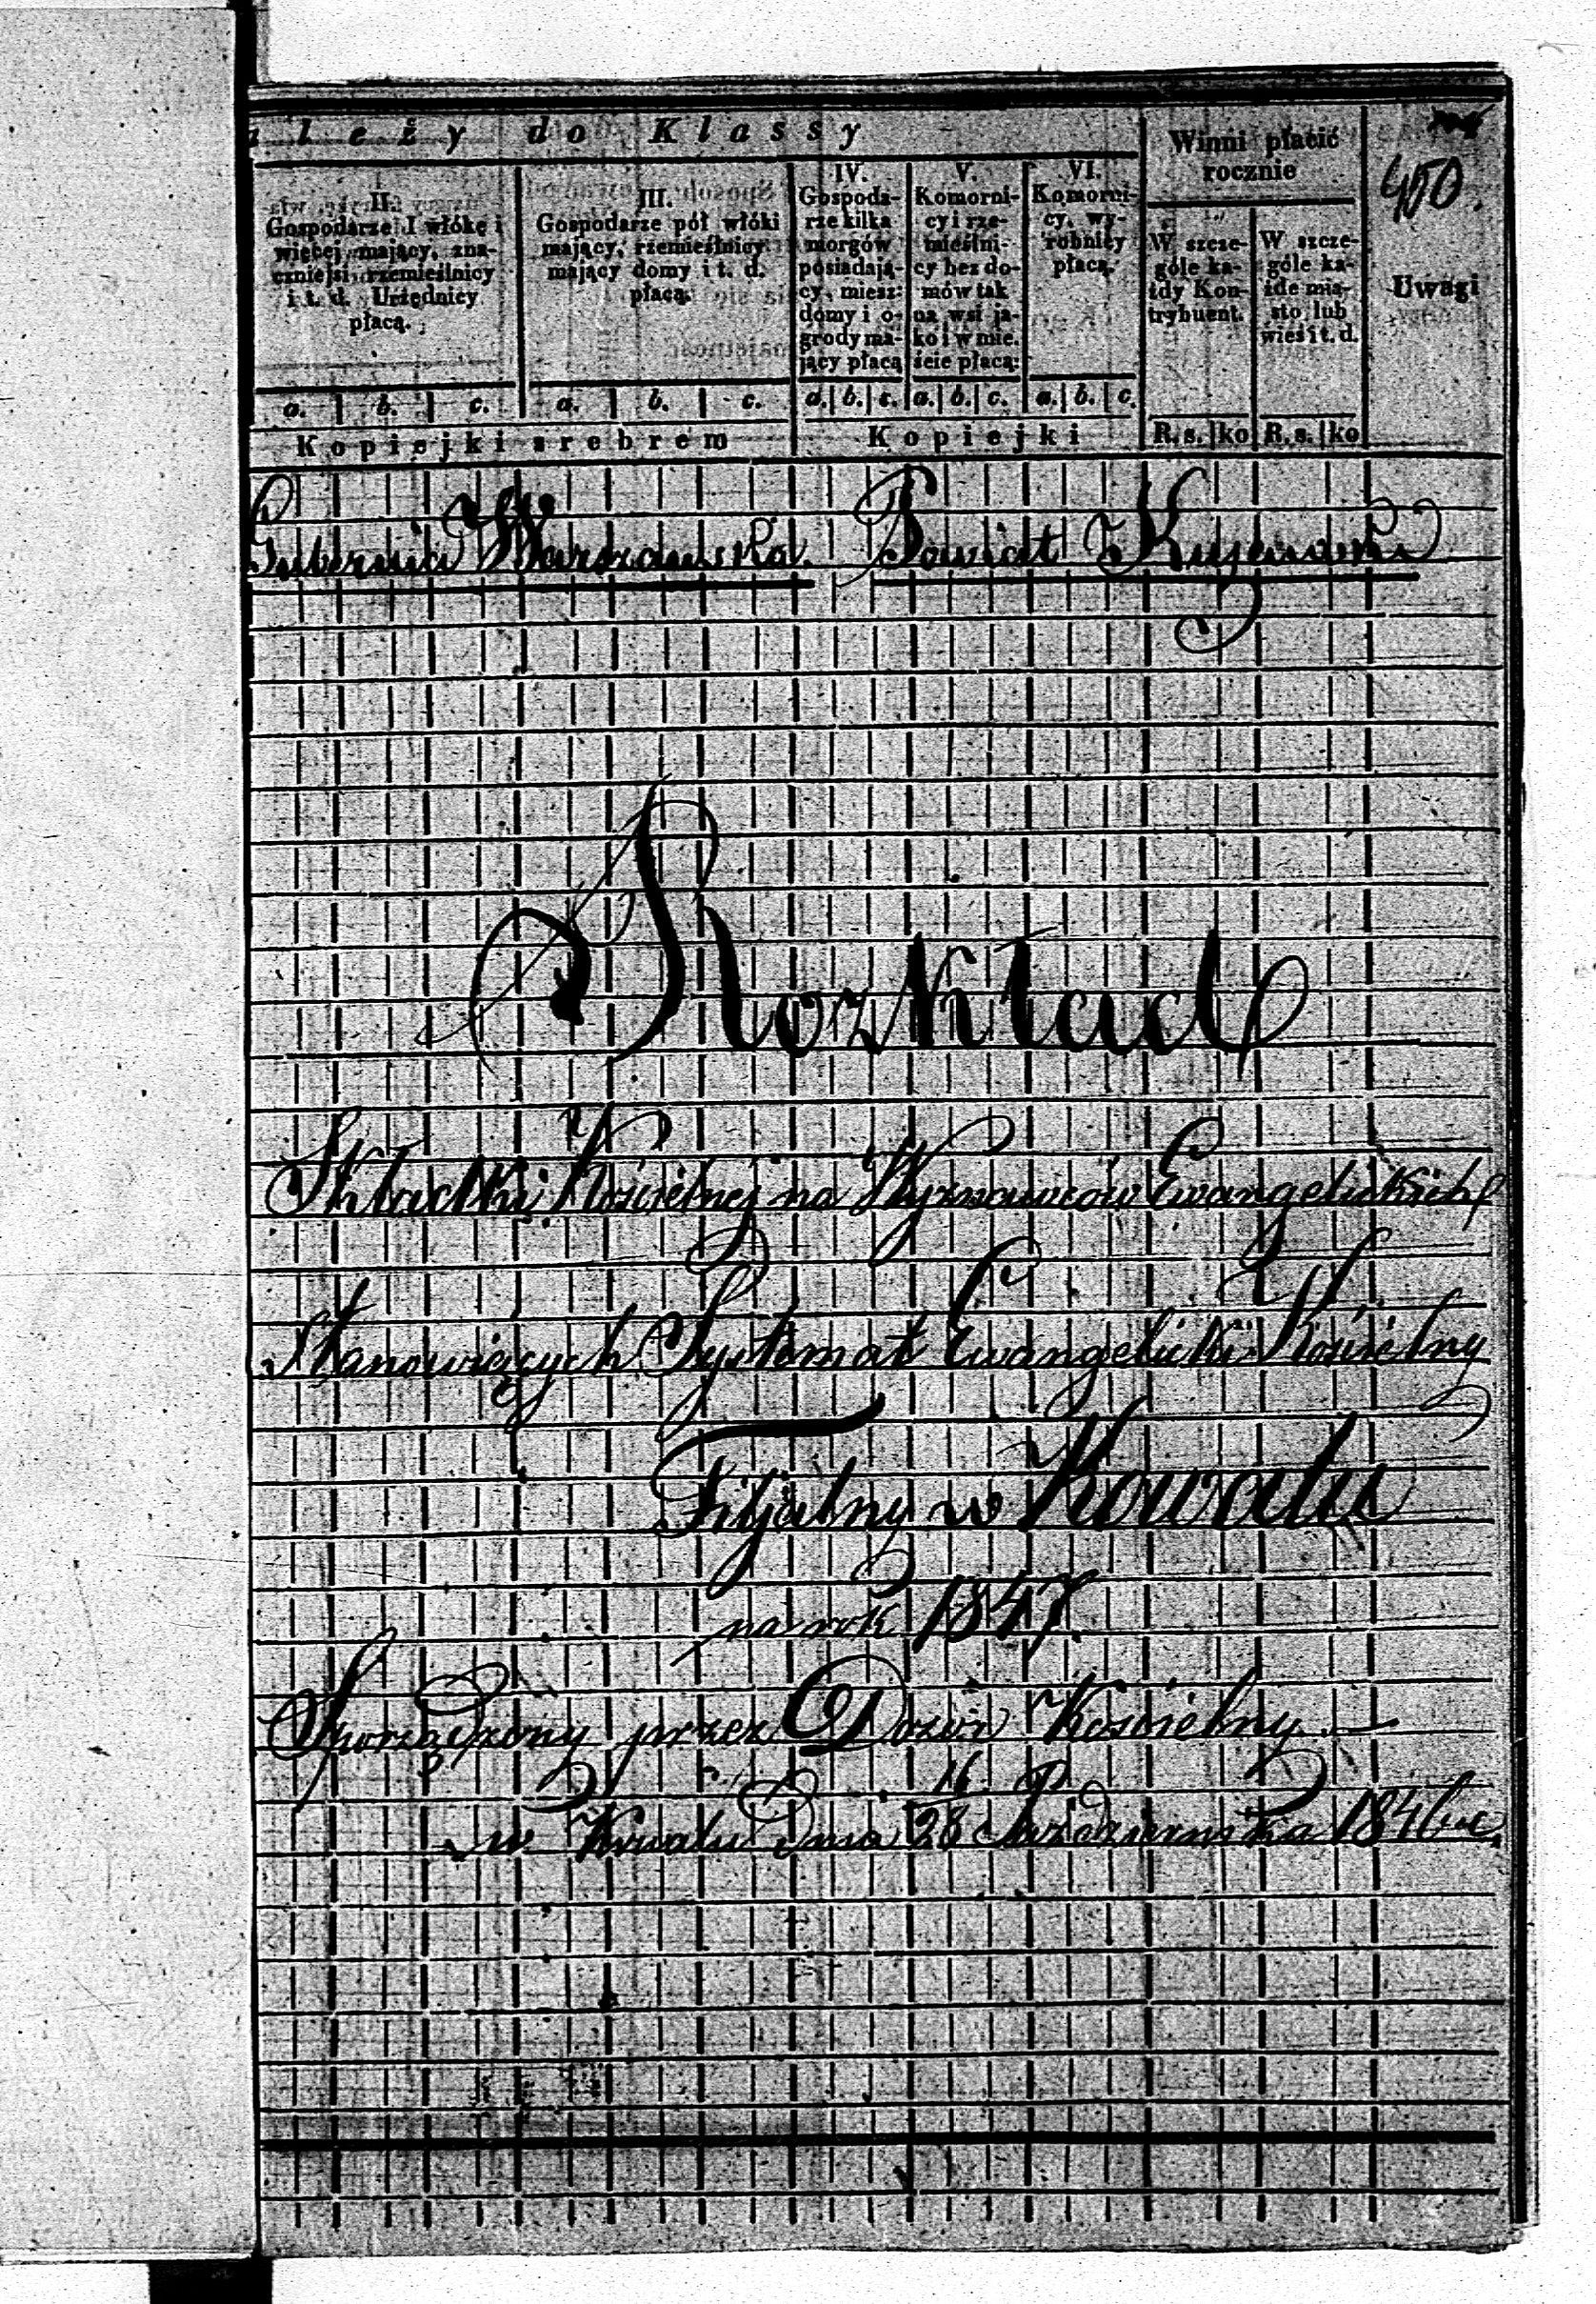 ależy do Klassy
Winni płacić
rocznie
450.
Uwagi
II.
Gospodarze I włókę i
więcej mający, zna-
czniejsi rzemieślnicy
i t. d. Urzędnicy
płacą.
III.
Gospodarze pół włóki
mający, rzemieślnicy
mający domy i t. d.
płacą.
IV.
Gospoda-
rze kilka
morgów
posiadają-
cy, miesz:
domy i o-
grody ma-
jący płacą
V.
Komorni-
cy i rze-
mieślni-
cy bez do-
mów tak
na wsi ja-
ko i w mie.
ście płacą:
VI.
Komorni-
cy, wy-
robnicy
płacą.
W szcze-
góle ka-
żdy Kon-
trybuent.
W szcze-
góle ka-
żde mia-
sto lub
wieś i t. d.
a. b. c. a. b. c. a. b. c. a. b. c. a. b. c.
Kopiejki srebrem Kopiejki R. s. ko R. s. ko
Gubernia Warszawska. Powiat Kujawski
Rozkład
Składki Kościelnej na Wyznawców Ewangelickich
Stanowiących Systemat Ewangelicki Kościelny
Filjalny w Kowalu
na rok 1847.
Sporządzony przez Dozór Kościelny
w Kowalu Dnia 16/28 Października 1846 r.